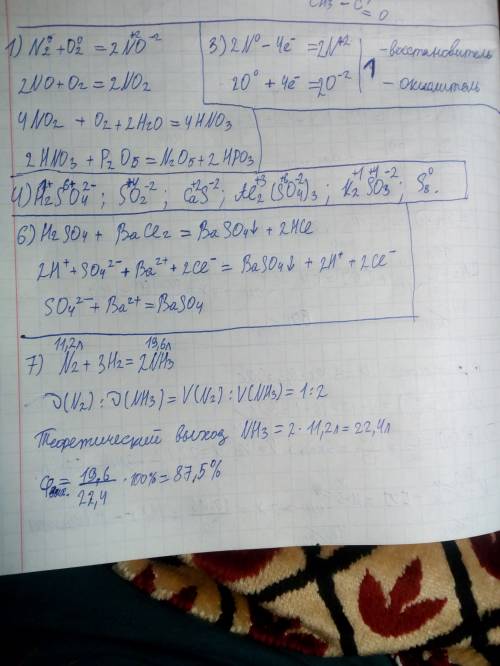 CH₃ - C
= O
1) N₂⁰ + O₂⁰ = 2N⁺²O⁻²
2NO + O₂ = 2NO₂
4NO₂ + O₂ + 2H₂O = 4HNO₃
2HNO₃ + P₂O₅ = N₂O₅ + 2HPO₃
3) 2N⁰ - 4e⁻ = 2N⁺² | 1 - восстановитель
2O⁰ + 4e⁻ = 2O⁻² | - окислитель
4) H₂¹⁺S⁶⁺O₄²⁻ ; S⁺⁴O₂⁻² ; Ca⁺²S⁻² ; Al₂⁺³(S⁺⁶O₄⁻²)₃ ; K₂⁺¹S⁺⁴O₃⁻² ; S₈⁰
6) H₂SO₄ + BaCl₂ = BaSO₄↓ + 2HCl
2H⁺ + SO₄²⁻ + Ba²⁺ + 2Cl⁻ = BaSO₄↓ + 2H⁺ + 2Cl⁻
SO₄²⁻ + Ba²⁺ = BaSO₄
11,2л 19,6л
7) N₂ + 3H₂ = 2NH₃
ν(N₂) : ν(NH₃) = V(N₂) : V(NH₃) = 1:2
Теоретический выход NH₃ = 2 · 11,2л = 22,4л
φ = 19,6 / 22,4 · 100% = 87,5%